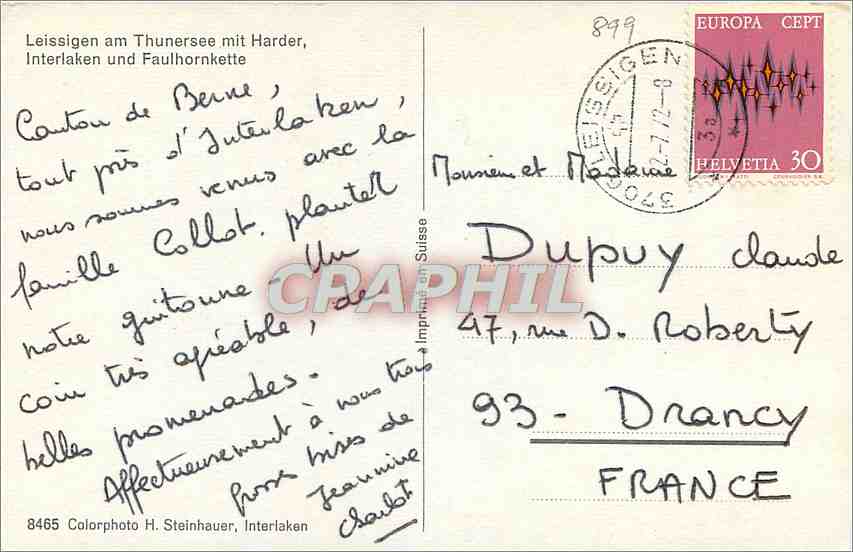 Leissigen am Thunersee mit Harder,
Interlaken und Faulhornkette
Canton de Berne,
tout près d'Interlaken,
nous sommes venus avec la
famille Collot. planter
notre guitoune - Un
coin très agréable, de
belles promenades.
Affectueusement à vous trois
grosses bises de
Jeannine
Charlot
8465 Colorphoto H. Steinhauer, Interlaken
Imprimé en Suisse
CPAPHIL
899
3706 LEISSIGEN
EUROPA CEPT
HELVETIA 30
Monsieur et Madame
Dupuy Claude
47, rue D. Roberty
93 - Drancy
FRANCE